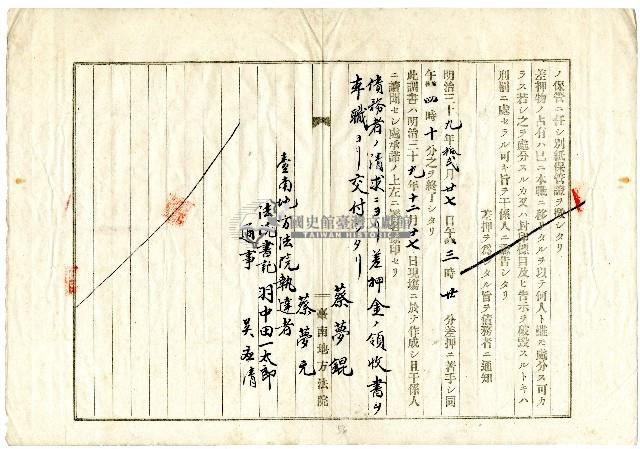 ノ保管ニ任シ別紙保管證ヲ徴シタリ
差押物ノ占有ハ已ニ本職ニ移リタルヲ以テ何人ト雖モ處分ス可カ
ラス若シ之ヲ處分スルカ又ハ封印標目及ヒ告示ヲ破毀スルトキハ
刑罰ニ處セラル可キ旨ヲ干係人ニ諭告シタリ
差押ヲ爲シタル旨ヲ債務者ニ通知
明治三十九年拾貳月廿七日午 三時廿 分差押ニ著手シ同
午 四時十分之ヲ終了シタリ
此調書ハ明治三十九年十二月廿七日現場ニ於テ作成シ且干係人
ニ讀聞セシ處承諾ノ上左ニ 印セリ
債務者ノ請求ニヨリ差押金ノ領收書ヲ
本職ヨリ交付シタリ
蔡夢錕
蔡夢元
臺南地方法院執達者
法院書記 羽中田一太郎
通事 吳 清
臺南地方法院
國史館臺灣文獻館
TAIWAN HISTORICA